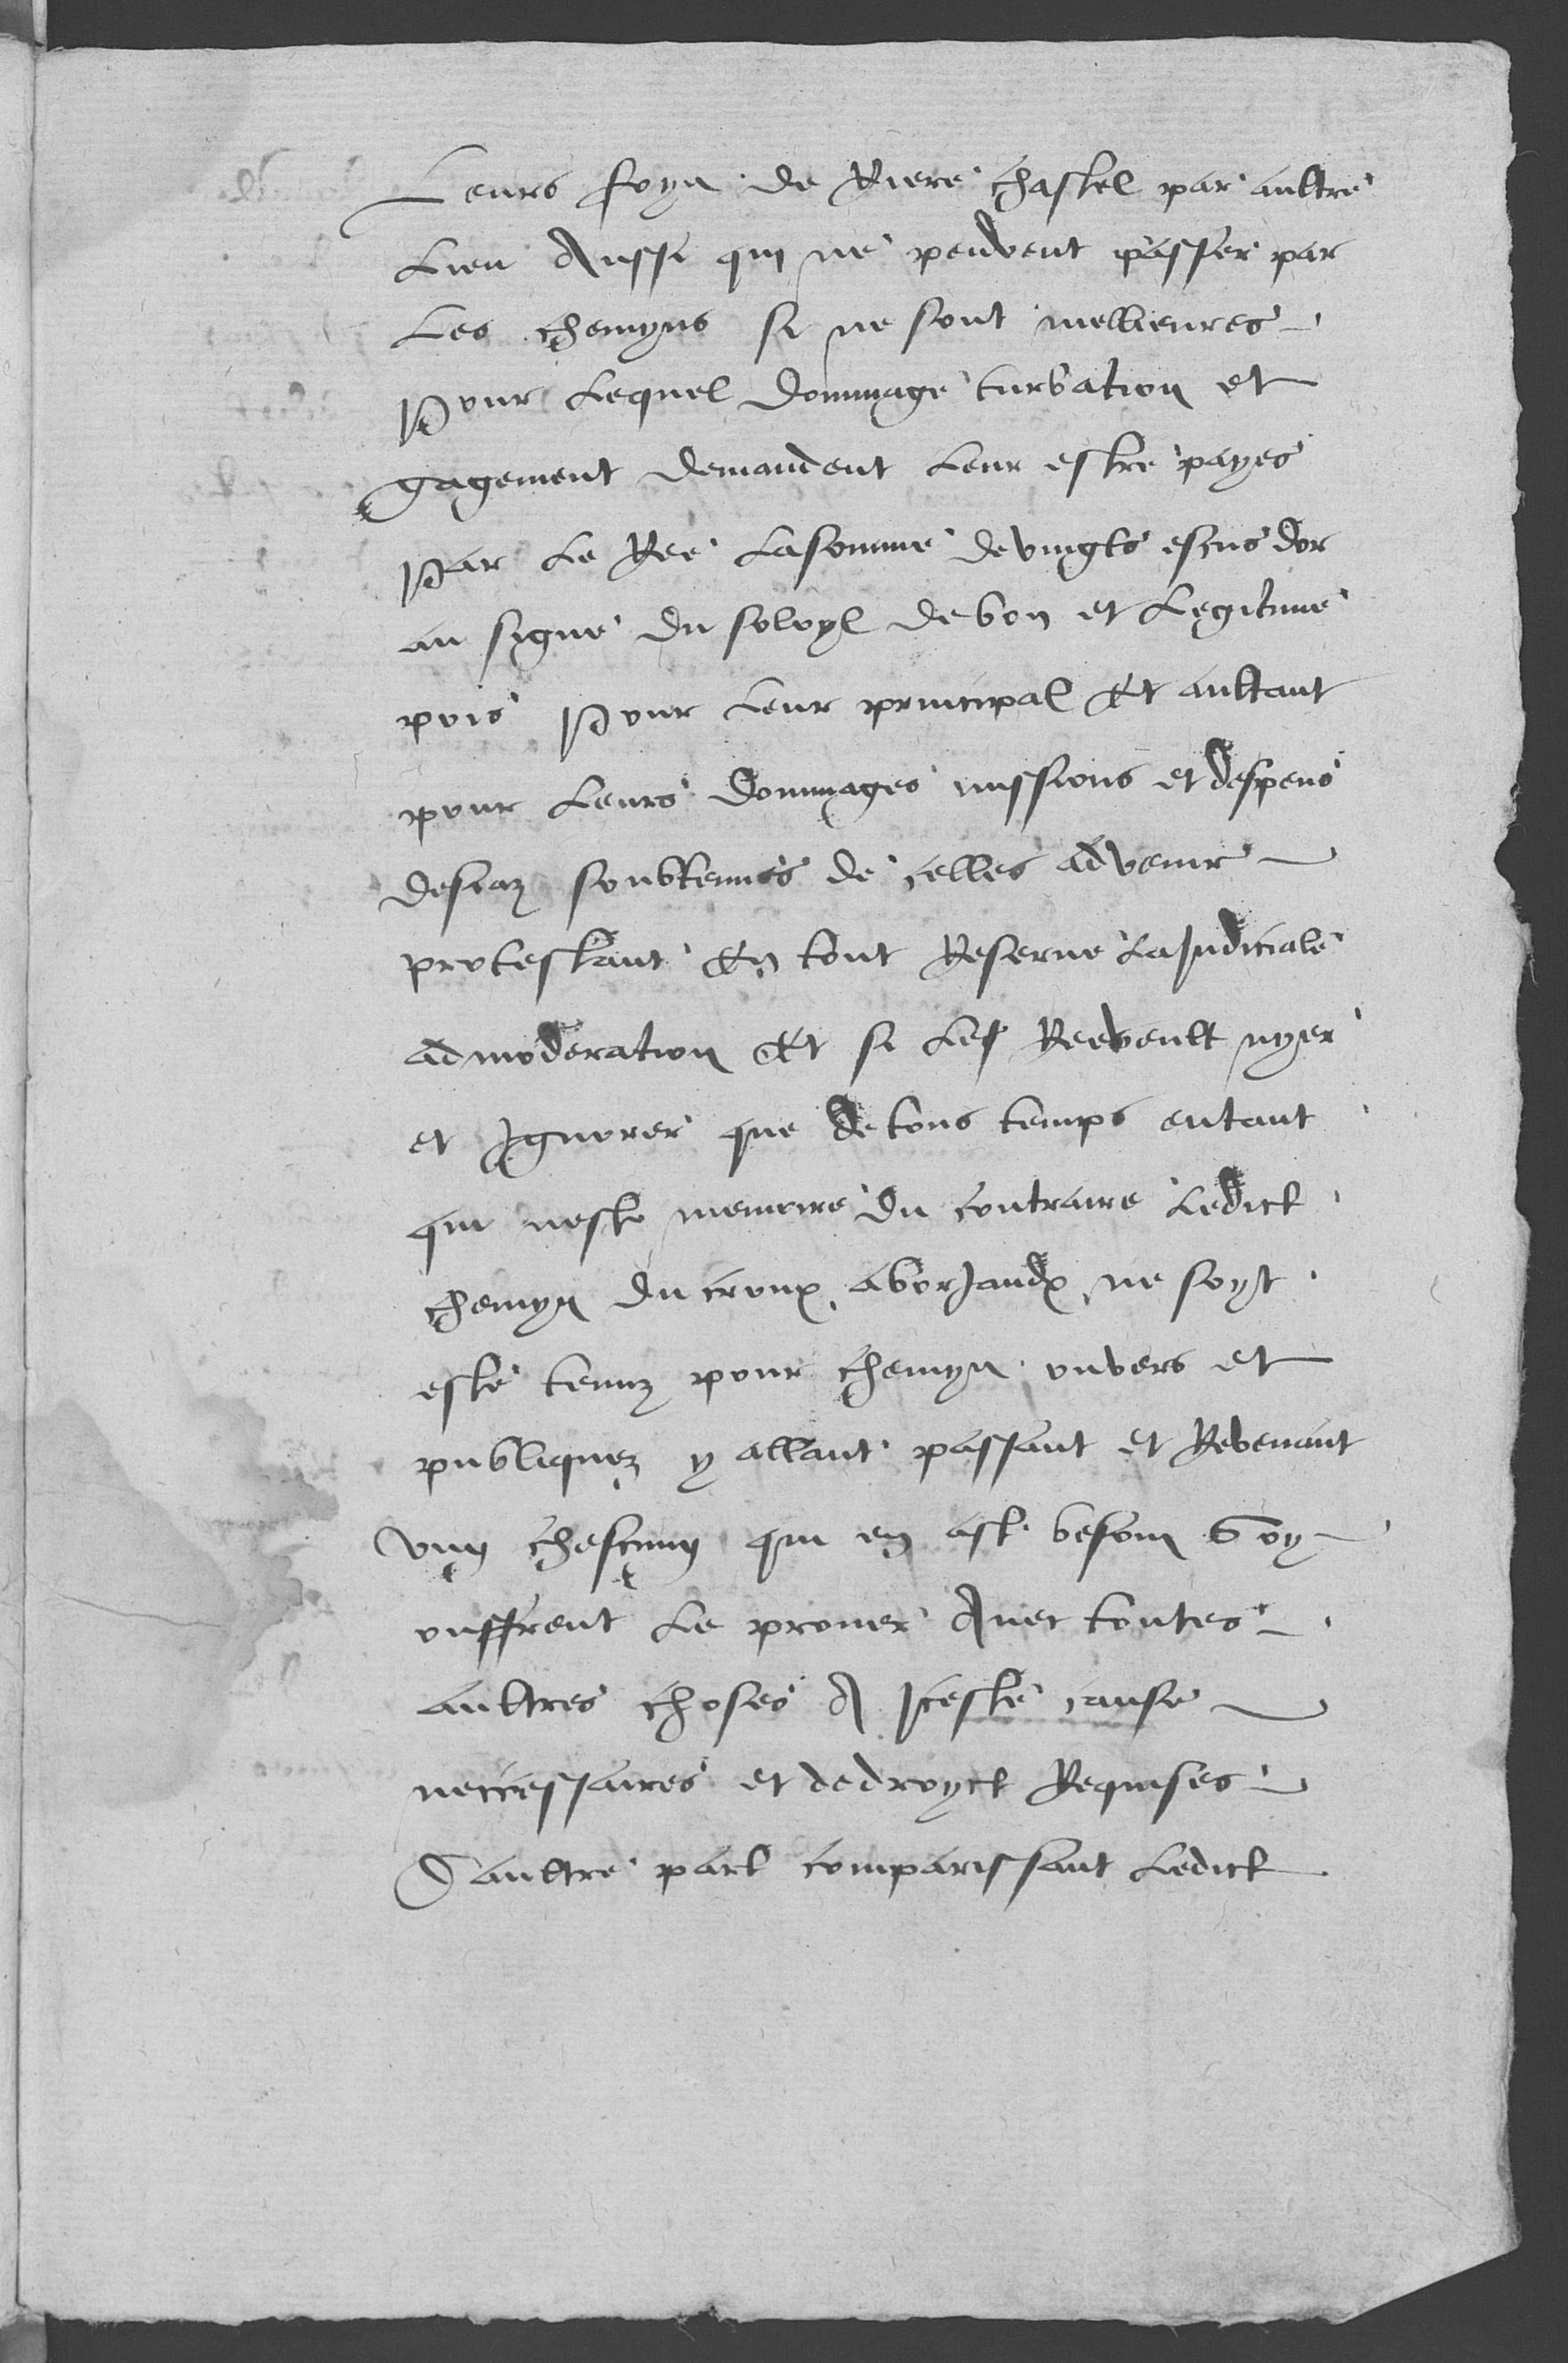 Leurs foyn de Riere chastel par aultre
Lieu Aussi qui ne peuvent passer par
Les chemyns si ne sont mellieures
Pour Lequel dommage turbation et
gagement demandent Leur estre payes
Par Le Ree La somme de vingts escus dor
au signe du soloyl de bon et Legitime
pois Pour Leur principal Et aultant
pour Leurs dommages missions et despens
desiaz soubtenues de celles advenir
protestant En tout Reserve La Judiciale
admoderation Et si Les Ree veult nyer
et Ignorer que de tous temps entant
qui neste memoire du contraire Ledict
chemyn du croux ne soyt
este tenuz pour chemyn ouvers et
publiquez y allant passant et Revenant
vng chescung qui en ast besoin
ouffrent Le prouver Avec toutes
aultres choses A Iceste cause
neccessaires et de droyct Requises
D aultre part comparissant Ledict